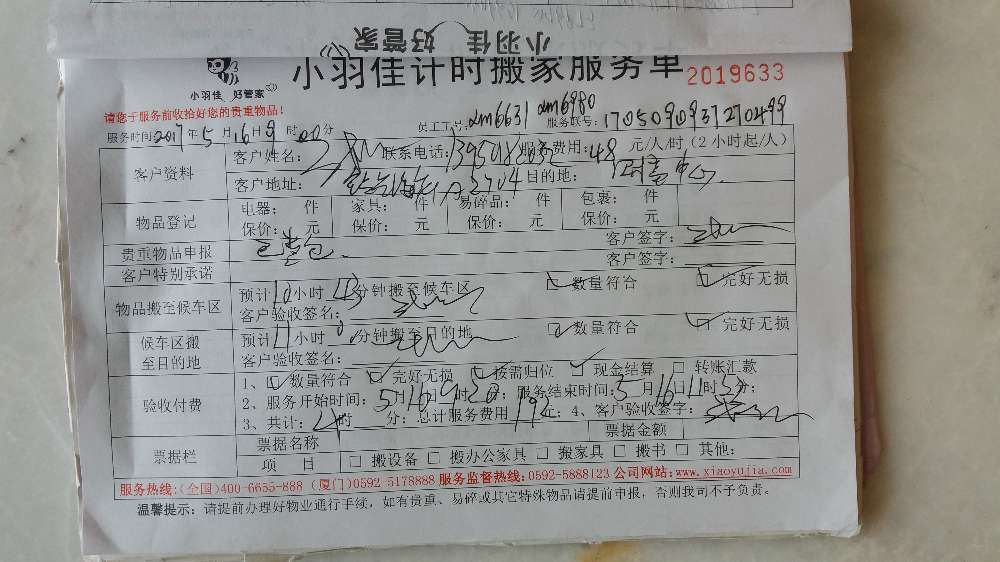 小羽佳 好管家
小羽佳计时搬家服务单 2019633
小羽佳 好管家
请您于服务前收拾好您的贵重物品!
服务时间:2017年5月16日9时00分 员工工号:xm6631 xm6980 服务联号:1705090937270499
客户资料 客户姓名: 联系电话: 服务费用:48元/人/时(2小时起/人)
客户地址: 2704 目的地:
物品登记 电器: 件 家具: 件 易碎品: 件 包裹: 件
保价: 元 保价: 元 保价: 元 保价: 元
客户签字:
贵重物品申报 客户签字:
客户特别承诺
物品搬至候车区 预计 小时 分钟搬至候车区 数量符合 完好无损
客户验收签名:
候车区搬至目的地 预计 小时 分钟搬至目的地 数量符合 完好无损
客户验收签名:
验收付费 1、 数量符合 完好无损 按需归位 现金结算 转账汇款
2、服务开始时间:5月16日9时30分;服务结束时间:5月16日11时 分;
3、共计: 时 分;总计服务费用192元 4、客户验收签字:
票据栏 票据名称 票据金额
项 目 搬设备 搬办公家具 搬家具 搬书 其他:
服务热线:(全国)400-6655-888 (厦门)0592-5178888 服务监督热线:0592-5888123 公司网站:www.xiaoyujia.com
温馨提示:请提前办理好物业通行手续,如有贵重、易碎或其它特殊物品请提前申报,否则我司不予负责。